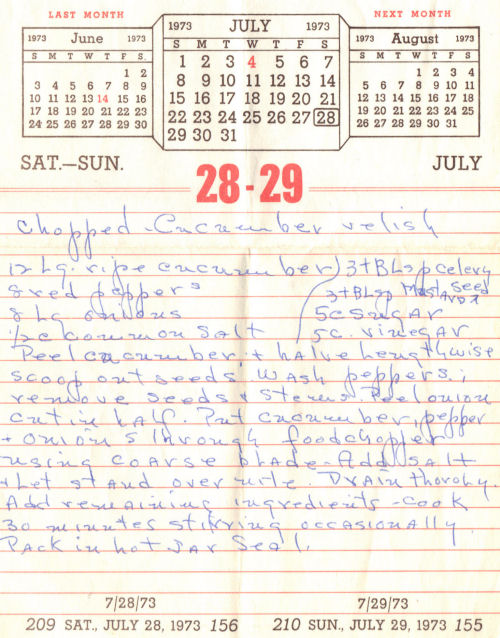 LAST MONTH
NEXT MONTH
1973 June 1973
S M T W T F S.
1 2
3 4 5 6 7 8 9
10 11 12 13 14 15 16
17 18 19 20 21 22 23
24 25 26 27 28 29 30
1973 JULY 1973
S M T W T F S
1 2 3 4 5 6 7
8 9 10 11 12 13 14
15 16 17 18 19 20 21
22 23 24 25 26 27 28
29 30 31
1973 August 1973
S M T W T F S
1 2 3 4
5 6 7 8 9 10 11
12 13 14 15 16 17 18
19 20 21 22 23 24 25
26 27 28 29 30 31
SAT.—SUN.
28-29
JULY
Chopped-Cucumber relish
12 Lg. ripe cucumber
8 red peppers
8 Lg onions
1/2c common salt
3 tBLsp celery Seed
3 tBLsp Mustard
5c Sugar
5c. vinegar
Peel cucumber, + halve Lengthwise
scoop out seeds. Wash peppers;
remove seeds + stems. Peel onion
cut in half. Put cucumber, pepper
+ onions through foodchopper
using coarse blade-Add salt
+ Let stand over nite. Drain
Add remaining ingredients-cook
30 minutes stirring occasionally.
Pack in hot Jar Seal.
7/28/73
7/29/73
209 SAT., JULY 28, 1973 156
210 SUN., JULY 29, 1973 155